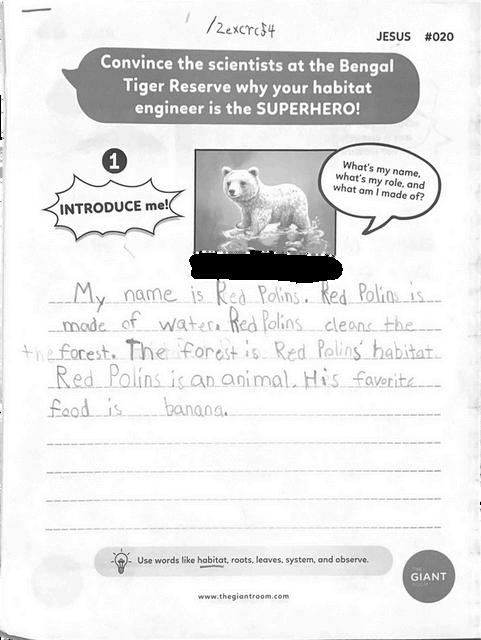 /2excrc54
JESUS #020
Convince the scientists at the Bengal
Tiger Reserve why your habitat
engineer is the SUPERHERO!
1
INTRODUCE me!
What's my name,
what's my role, and
what am I made of?
My name is Red Polins. Red Polins is
made of water. Red Polins cleans the
the forest. The forest is Red Polins' habitat.
Red Polins is an animal. His favorite
food is banana.
Use words like habitat, roots, leaves, system, and observe.
THE
GIANT
ROOM
www.thegiantroom.com